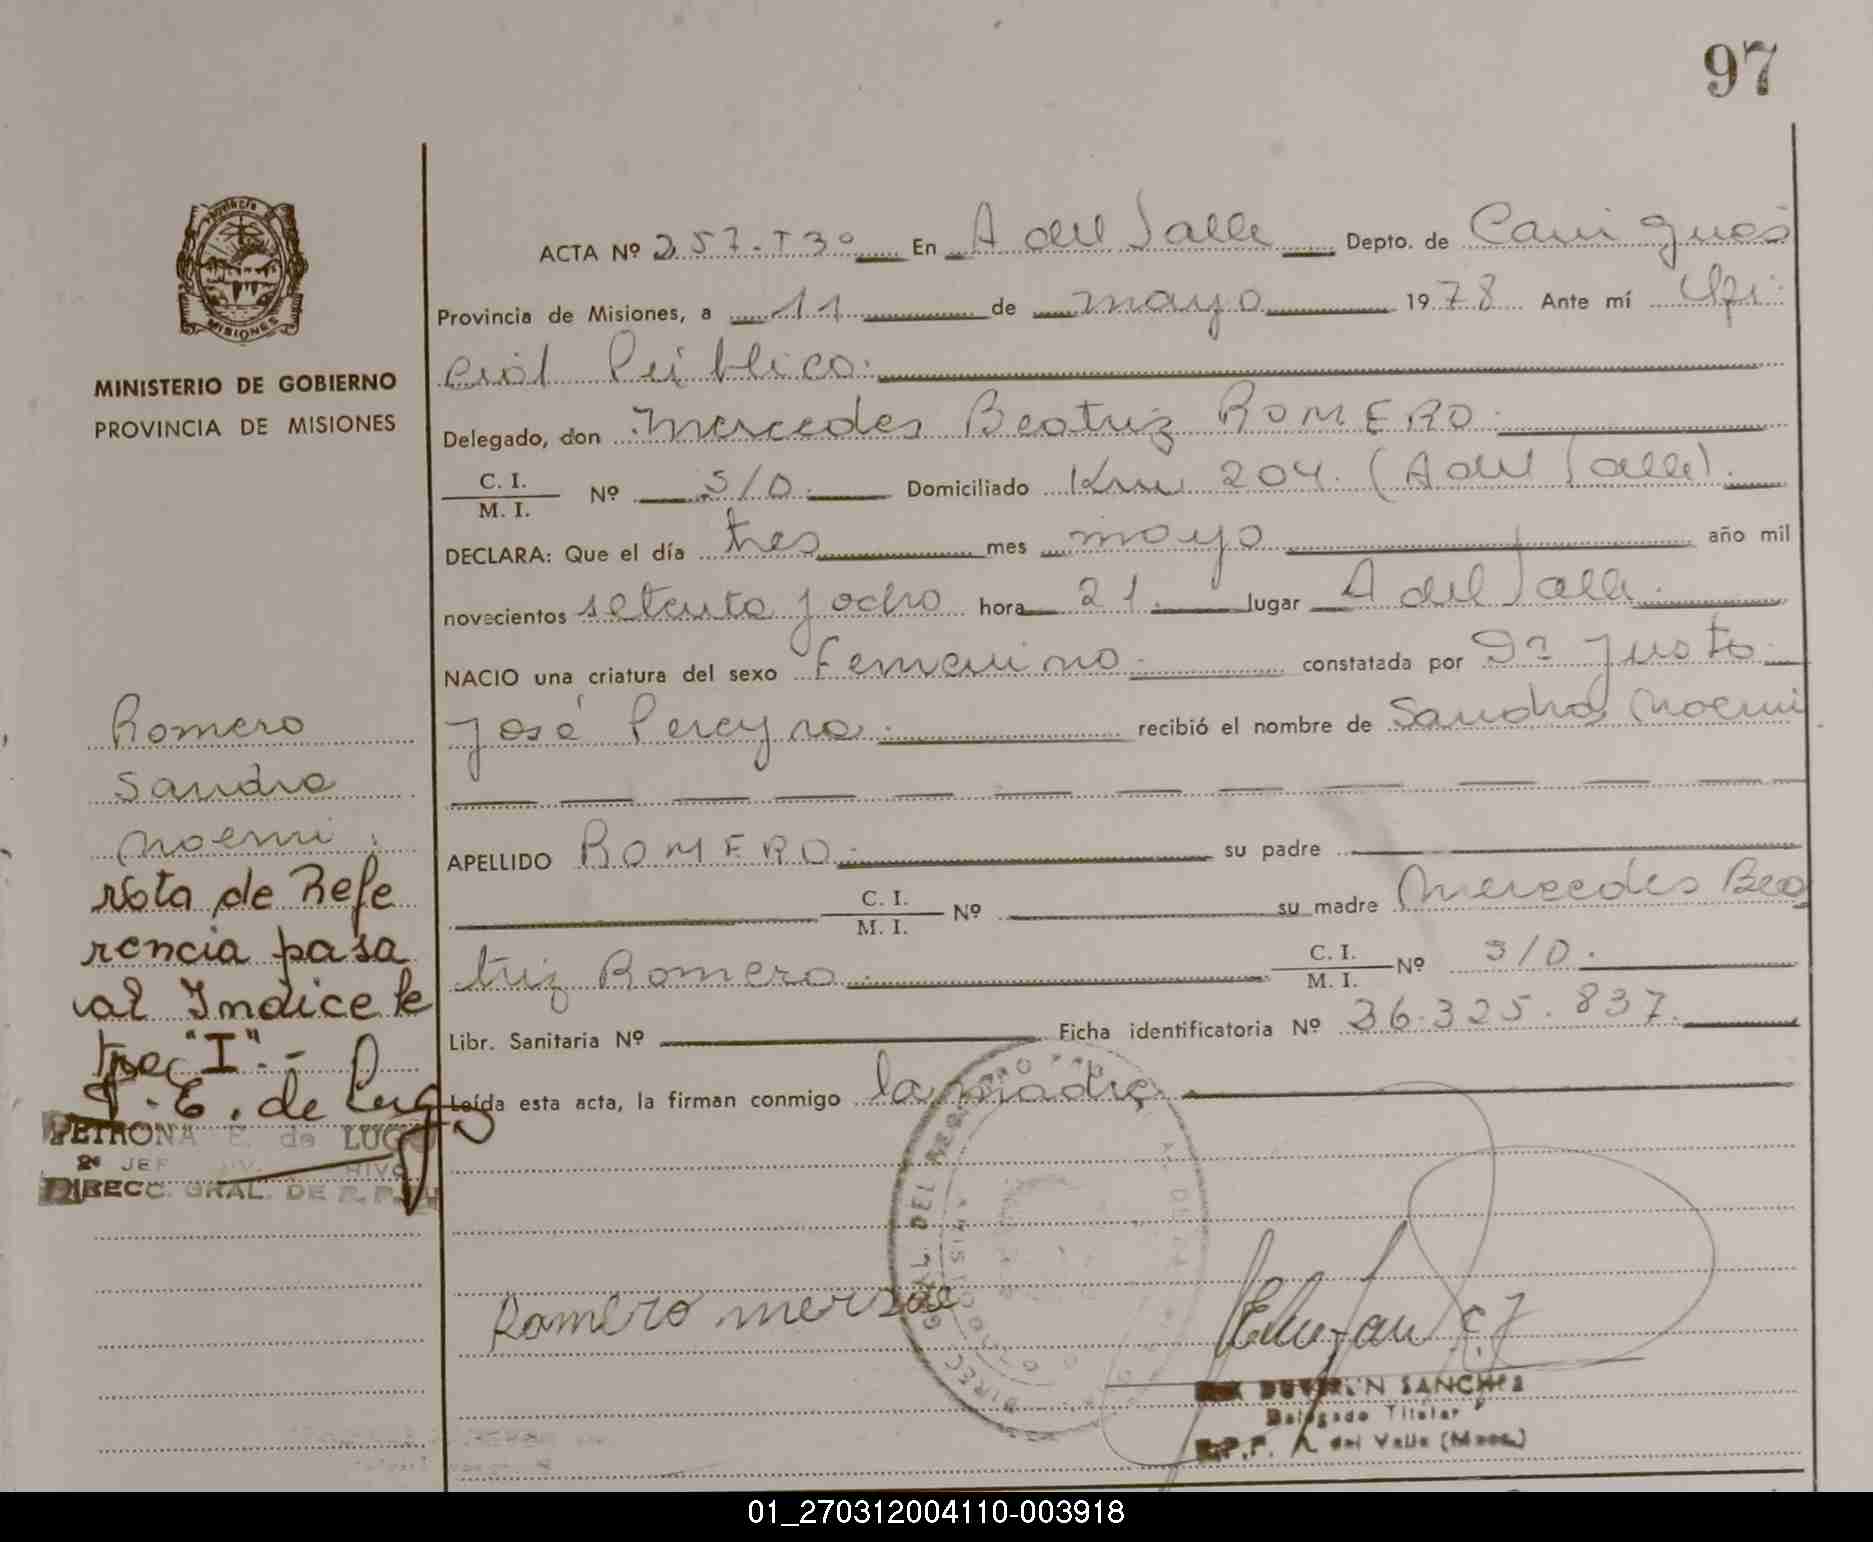 97
Provincia
MISIONES
MINISTERIO DE GOBIERNO
PROVINCIA DE MISIONES
ACTA Nº 257-T3º En A del Valle Depto. de Cainguás
Provincia de Misiones, a 11 de mayo 1978 Ante mí Ofi
cial Público.
Delegado, don Mercedes Beatriz ROMERO.
C. I.
M. I. Nº S/D. Domiciliado Km 204. (A del Valle).
DECLARA: Que el día tres mes mayo año mil
novecientos setenta y ocho hora 21. lugar A del Valle.
NACIO una criatura del sexo Femenino. constatada por Dr Justo
José Pereyra. recibió el nombre de Sandra Noemi
APELLIDO ROMERO. su padre
C. I.
M. I. Nº su madre Mercedes Bea
triz Romero. C. I.
M. I. Nº S/D.
Libr. Sanitaria Nº Ficha identificatoria Nº 36.325.837.
Leída esta acta, la firman conmigo la madre.
Romero
Sandra
Noemi.
Nota de Refe
rencia pasa
al Indice le
tra "I".-
P. E. de Lugo
PETRONA E. de LUGO
2º JEF
DIRECC. GRAL. DE R. P.
GRAL. DEL REG
Romero
SANCHEZ
Delegado Titular
R.P.P. A. del Valle (Mnes.)
01_270312004110-003918